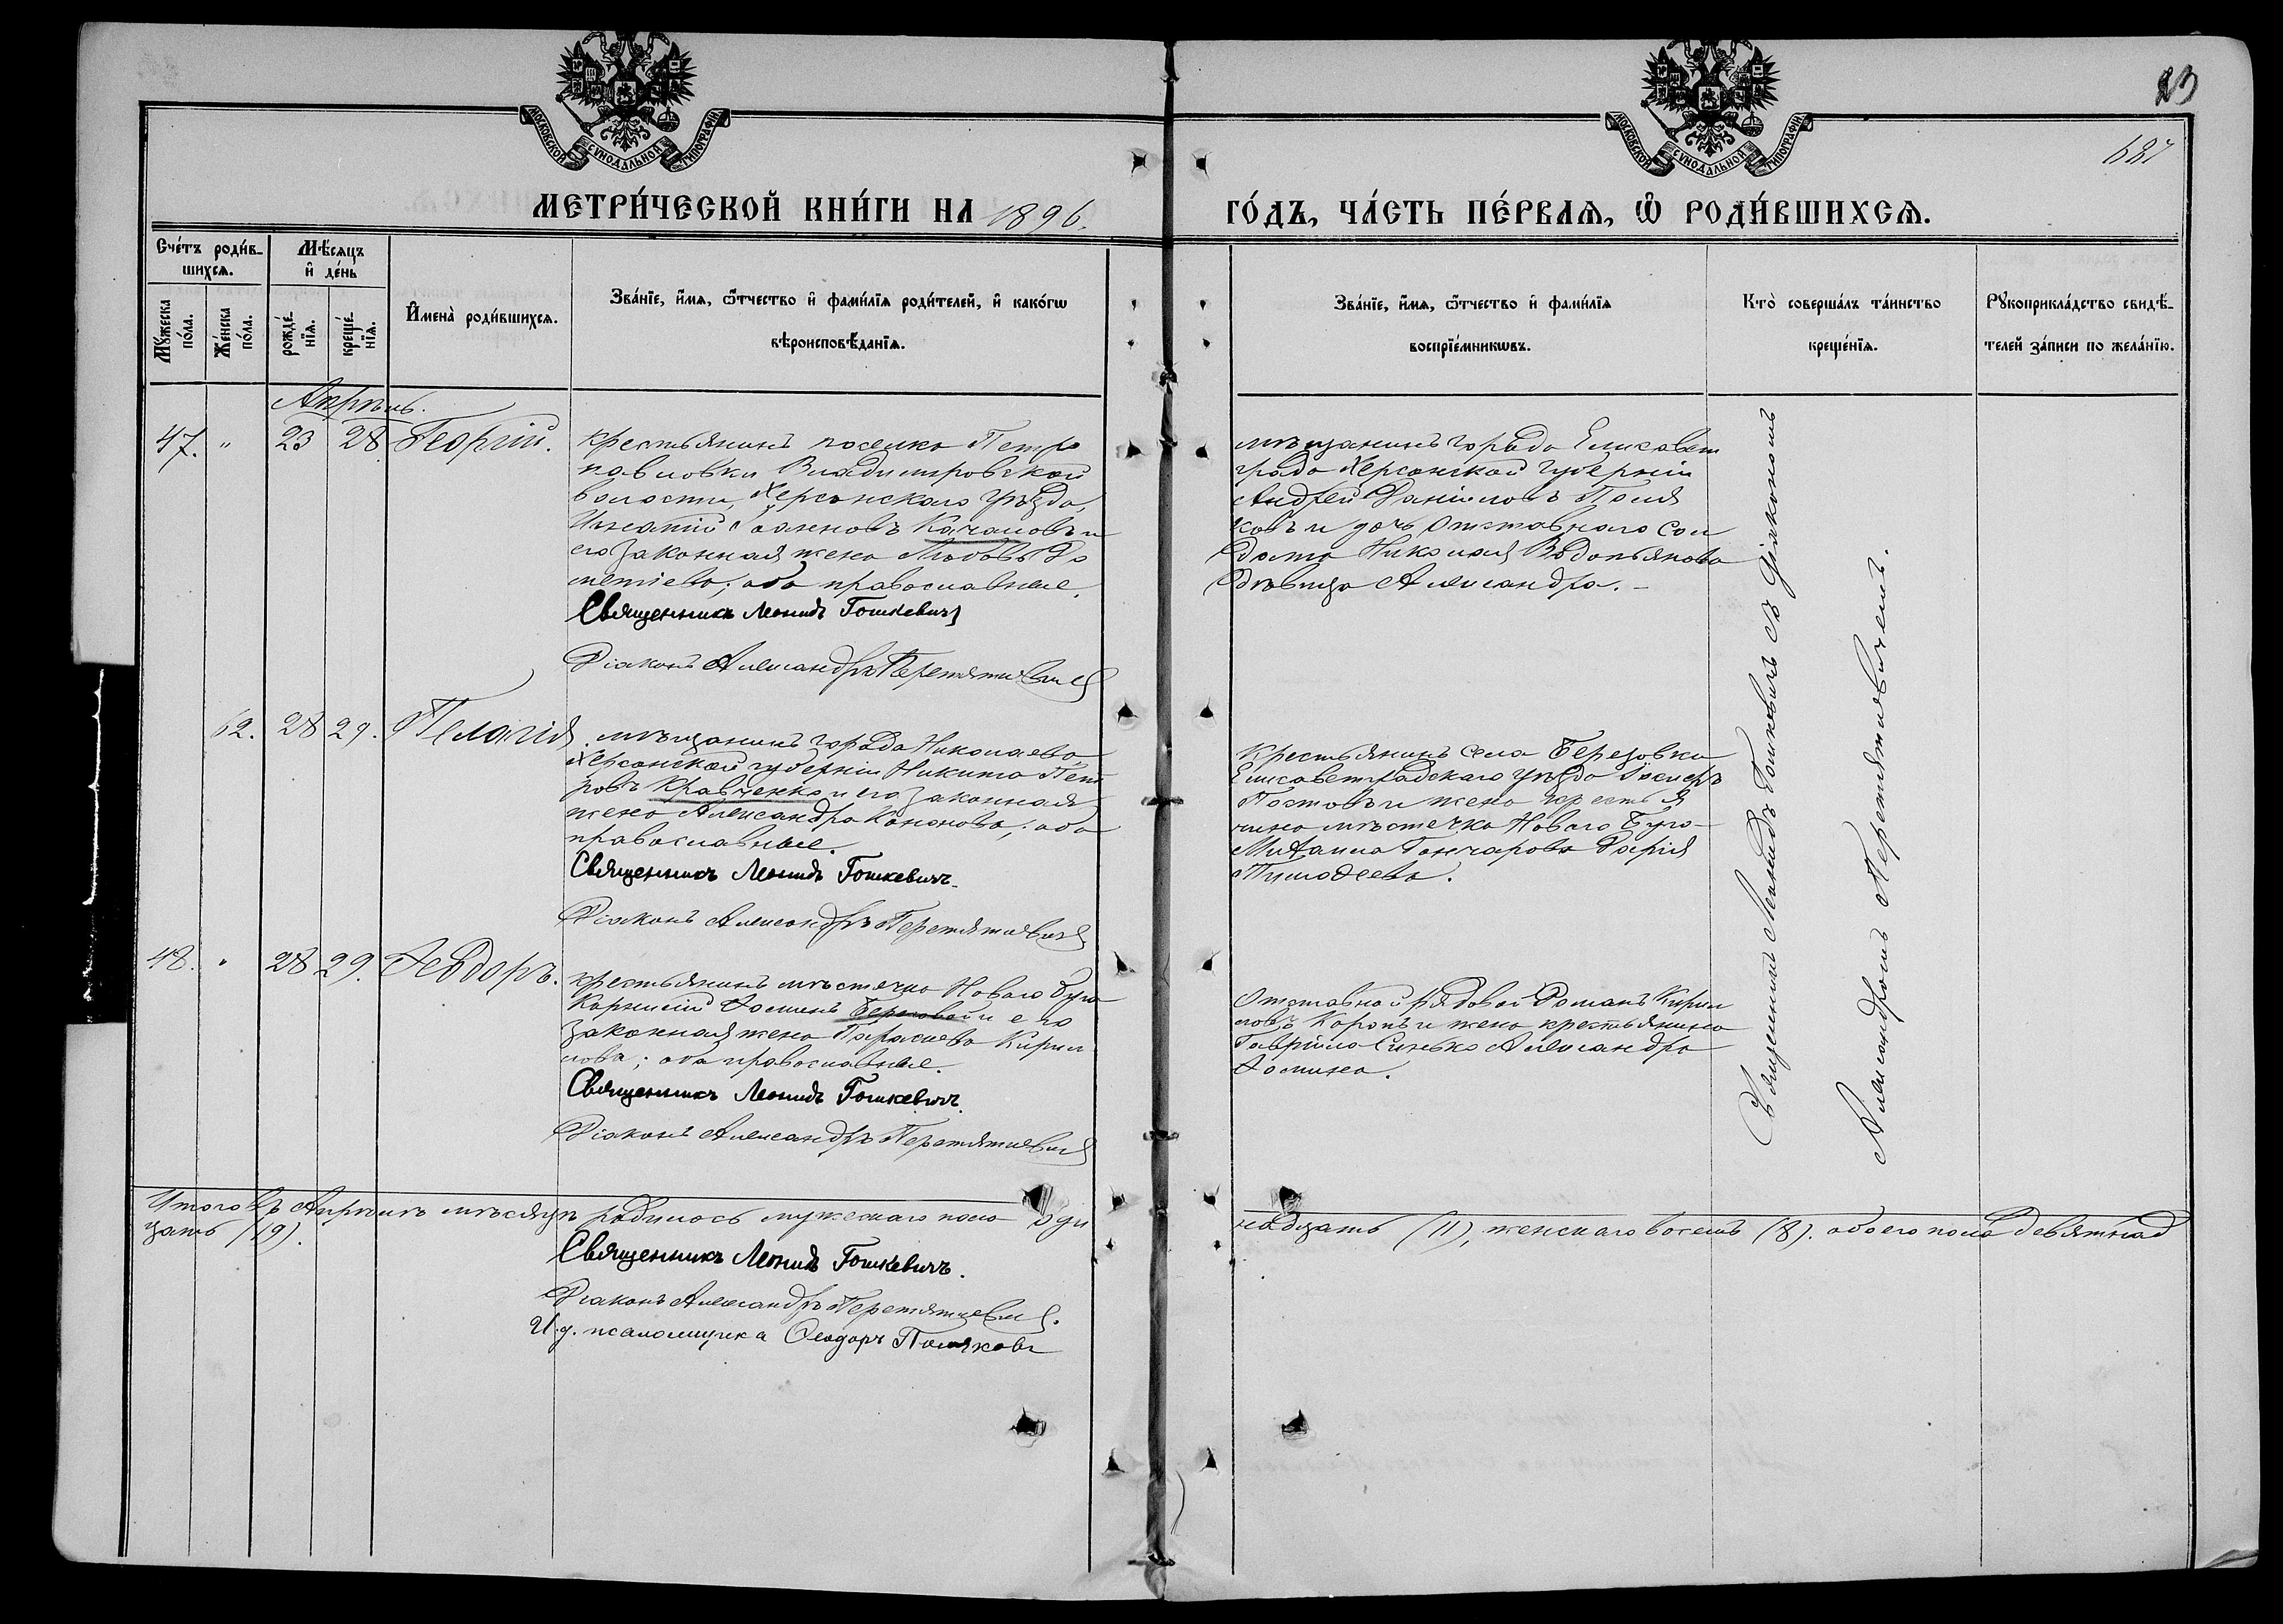 23
687
МОСКОВСКОЙ СѴНОДАЛЬНОЙ ТИПОГРАФІИ
МОСКОВСКОЙ СѴНОДАЛЬНОЙ ТИПОГРАФІИ
МЕТРИ́ЧЕСКОЙ КНИ́ГИ НА 1896.
ГО́ДЪ, ЧА́СТЬ ПЕ́РВАѦ, Ѽ РОДИ́ВШИХСѦ.
Сче́тъ роди́в-
шихсѧ.
Мꙋ́жеска по́ла.
Же́нска по́ла.
Мѣ́сѧцъ
и҆ де́нь
рожде́-нїѧ.
креще́-нїѧ.
И҆мена̀ роди́вшихсѧ.
Зва́нїе, и҆́мѧ, ѻ҆́тчество и҆ фами́лїѧ роди́телей, и҆ како́гѡ
вѣроисповѣ́данїѧ.
Зва́нїе, и҆́мѧ, ѻ҆́тчество и҆ фами́лїѧ
воспрїе́мникѡвъ.
Кто̀ соверша́лъ та́инство
креще́нїѧ.
Рꙋкоприкла́дство свидѣ́-
телей за́писи по жела́нїю.
Апрѣль.
47. " 23 28 Георгій.
крестьянинъ поселка Петро
павловки Владимировской
волости, Херсонскаго уѣзда,
Игнатій Іоанновъ Качаловъ и
его законная жена Любовь До
метіева; оба православные.
Священникъ Леонидъ Гошкевичъ
Діаконъ Александръ Перетяткевичъ
мѣщанинъ города Елисавет
града Херсонской губерніи
Андрей Даніиловъ Поля
ковъ и дочь отставного сол
дата Николая Водопьянова
дѣвица Александра. -
62. 28 29. Пелагія
мѣщанинъ города Николаева,
Херсонской губерніи Никита Пет
ровъ Кравченко и его законная
жена Александра Кононова; оба
православные.
Священникъ Леонидъ Гошкевичъ.
Діаконъ Александръ Перетяткевичъ
Крестьянинъ села Березовки
Елисаветградскаго уѣзда
Постовъ и жена крестья
нина мѣстечка Новаго Буга
Михаила Гончарова Дарія
Тимоѳеева.
48. " 28 29. Ѳеодоръ.
крестьянинъ мѣстечка Новаго Буга
Корнилій Ѳоминъ Береговой и его
законная жена Параскева Кирил
лова; оба православные.
Священникъ Леонидъ Гошкевичъ.
Діаконъ Александръ Перетяткевичъ
Отставной рядовой Романъ Кирил
ловъ Коропъ и жена крестьянина
Гавріила Синько Александра
Ѳомина.
Священникъ Леонидъ Гошкевичъ съ діакономъ
Александромъ Перетяткевичемъ.
Итого въ Апрѣлѣ мѣсяцѣ родилось мужескаго пола оди
надцать (11), женскаго восемь (8). обоего пола девятнад
цать (19).
Священникъ Леонидъ Гошкевичъ.
Діаконъ Александръ Перетяткевичъ.
И. д. псаломщика Ѳеодоръ Поляковъ